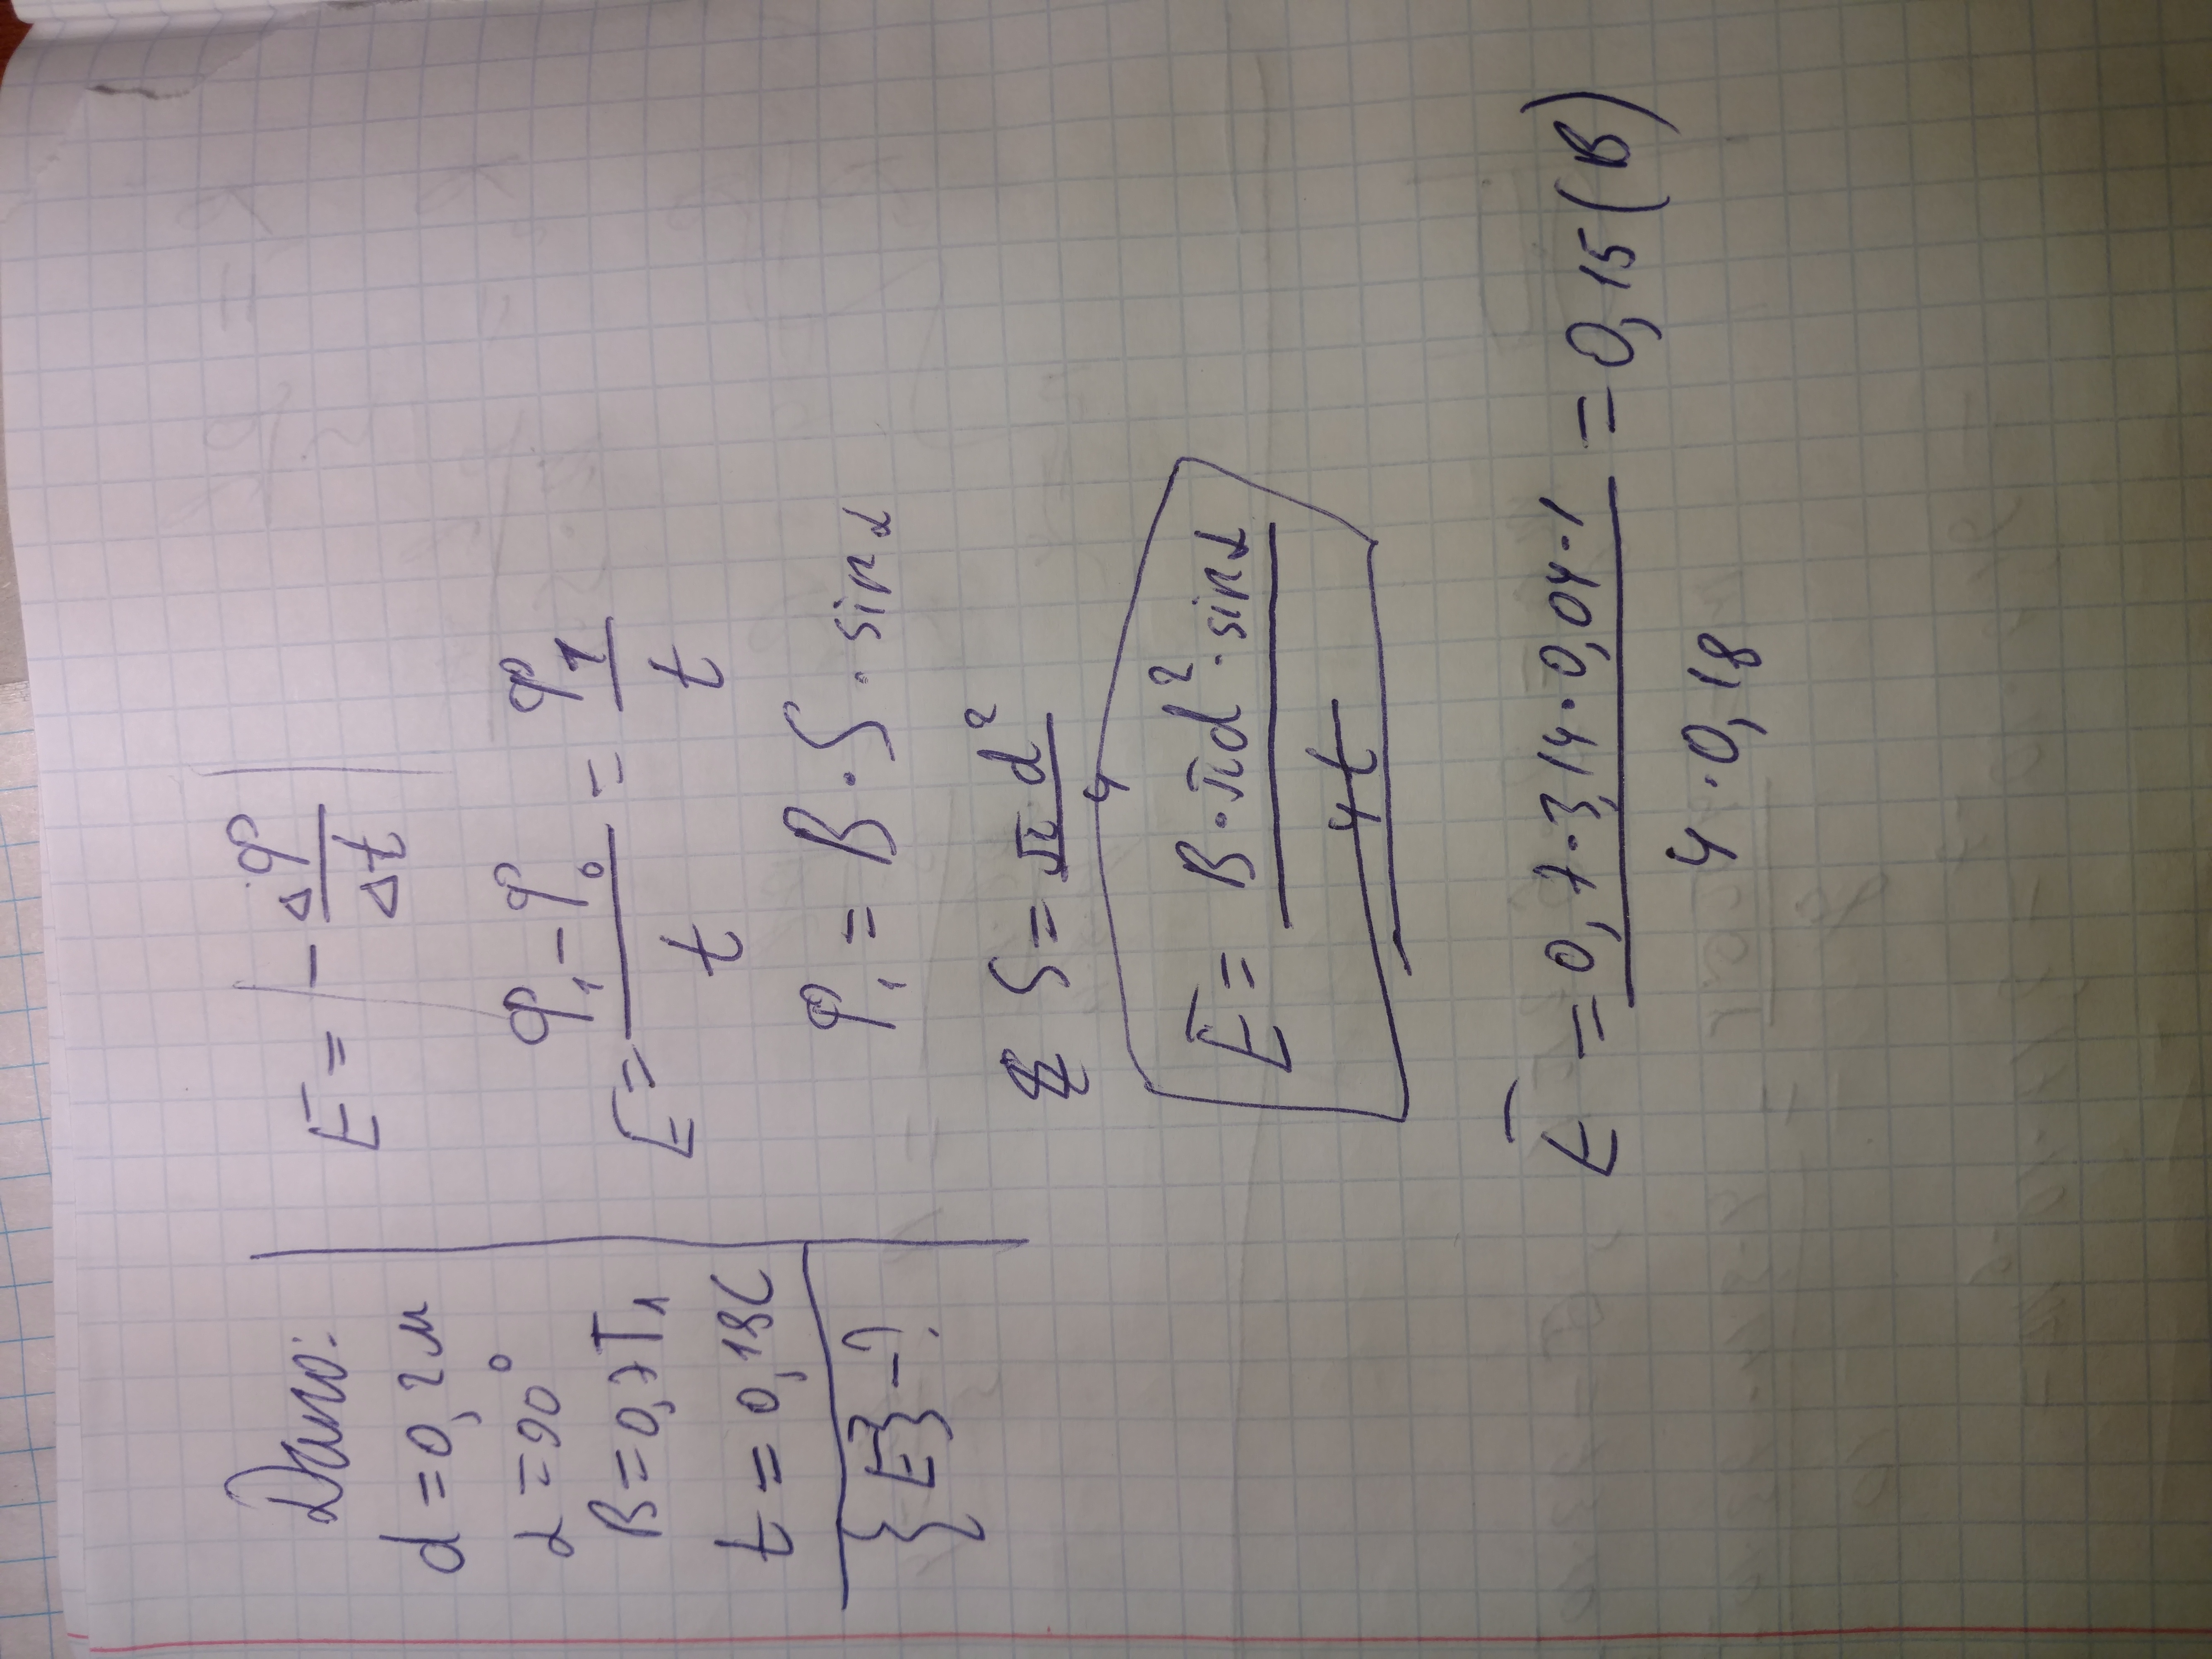 Дано:
d = 0,2 м
α = 90°
B = 0,7 Тл
t = 0,18 с
{E} - ?
E = | - ΔΦ / Δt |
E = (Φ₁ - Φ₀) / t = Φ₁ / t
Φ₁ = B · S · sin α
S = π d² / 4
E = B · π d² · sin α / 4t
E = 0,7 · 3,14 · 0,04 · 1 / 4 · 0,18 = 0,15 (В)